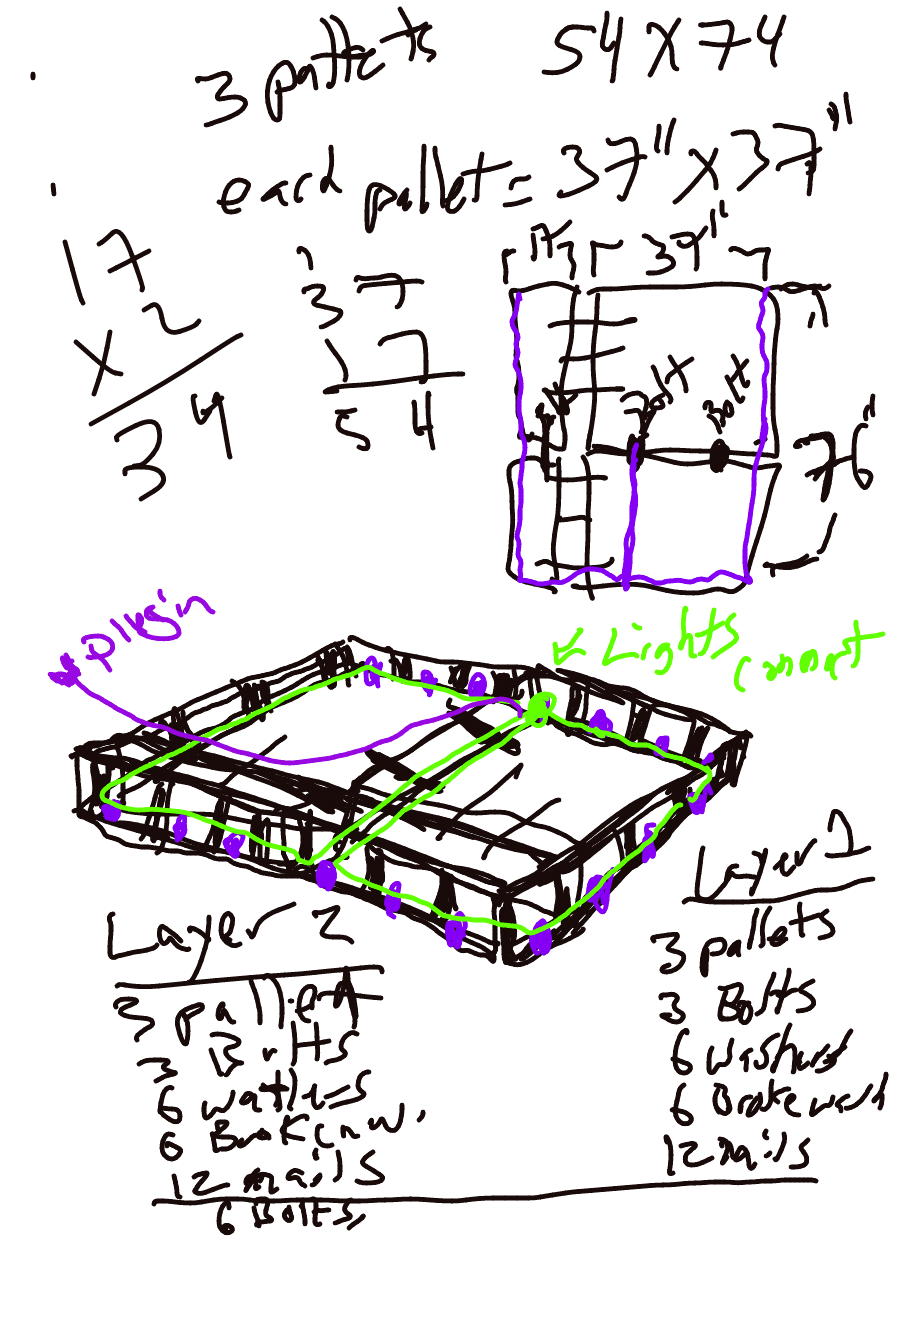 3 pallets 54 X 74
each pallet = 37" X 37"
17
X 2
34
1
37
17
54
17 37"
Bolt Bolt
76"
Plugin
Lights
connect
Layer 1
3 pallets
3 Bolts
6 washers
6
12 nails
Layer 2
3 pallet
3 Bolts
6
6
12 nails
6 Bolts